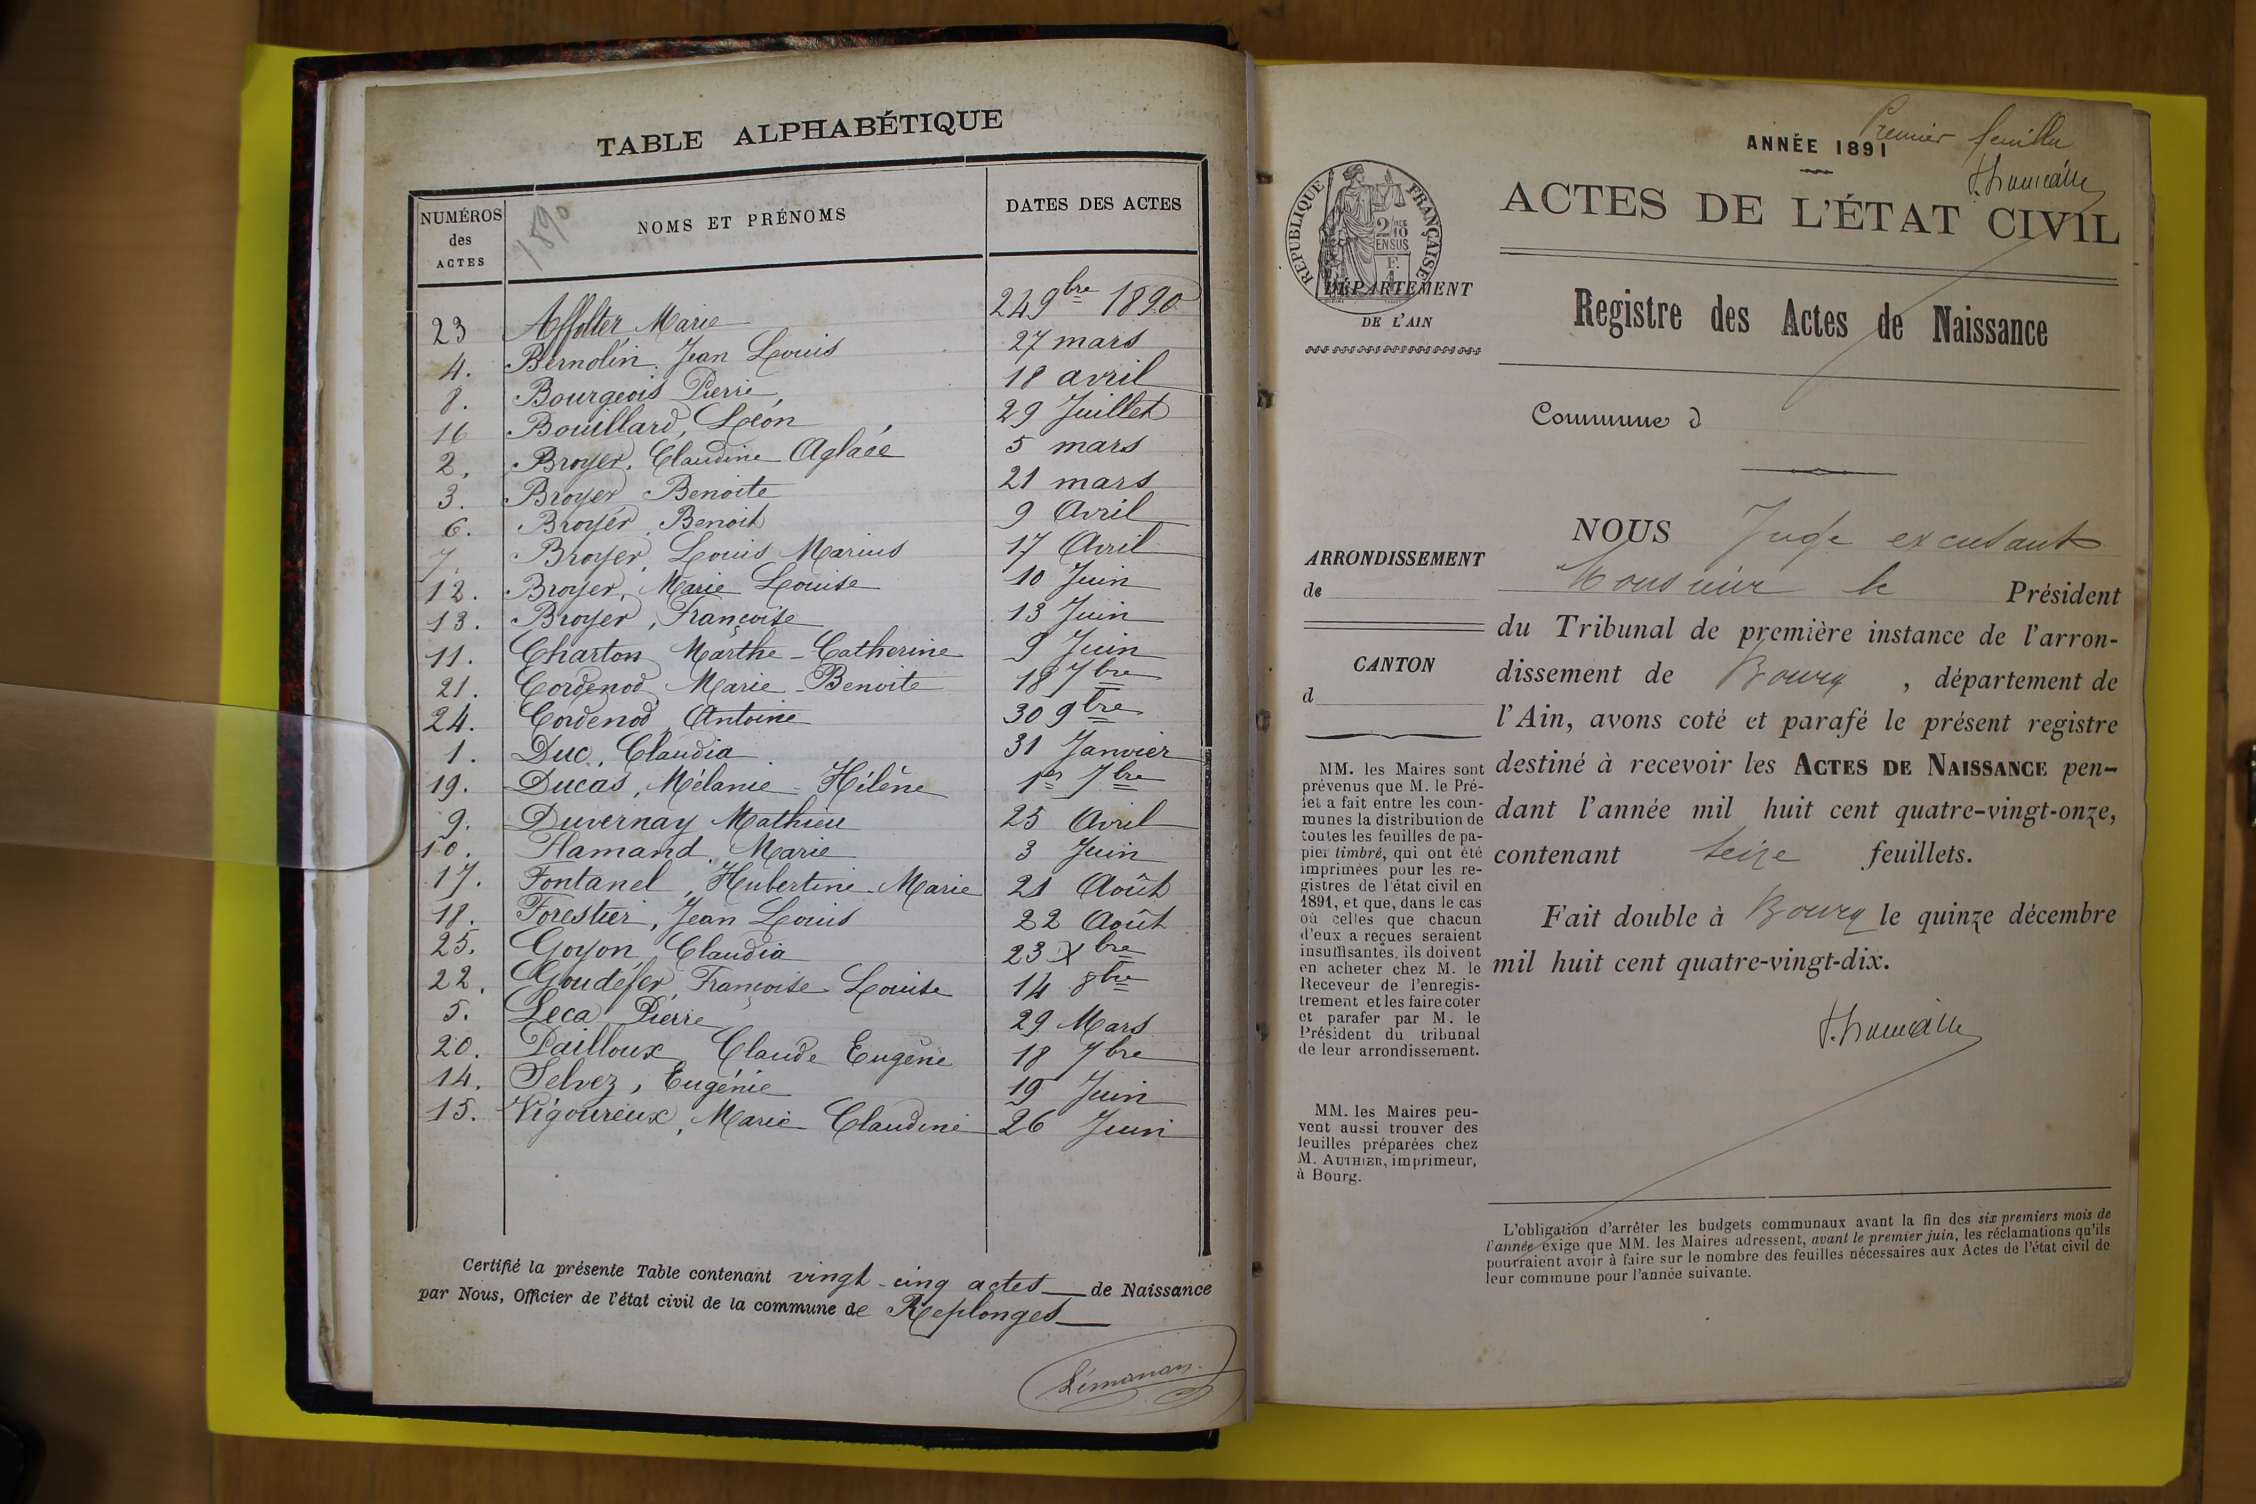 TABLE ALPHABÉTIQUE
NUMÉROS des ACTES
1890
NOMS ET PRÉNOMS
DATES DES ACTES
23 Affolter Marie 24 9bre 1890
4. Bernolin Jean Louis 27 mars
8. Bourgeois Pierre 18 avril
16 Bouillard, Léon 29 Juillet
2. Broyer, Claudine Aglaée 5 mars
3. Broyer Benoite 21 mars
6. Broyer, Benoit 9 Avril
7. Broyer, Louis Marius 17 Avril
12. Broyer, Marie Louise 10 Juin
13. Broyer, Françoise 13 Juin
11. Charton Marthe-Catherine 9 Juin
21. Cordenod Marie-Benoite 18 7bre
24. Cordenod Antoine 30 9bre
1. Duc, Claudia 31 Janvier
19. Ducas, Mélanie-Hélène 1er 7bre
9. Duvernay Mathieu 25 Avril
10. Flamand Marie 3 Juin
17. Fontanel, Hubertine-Marie 21 Août
18. Forestier, Jean Louis 22 Août
25. Goyon Claudia 23 Xbre
22. Goudefer Françoise Louise 14 8bre
5. Leca Pierre 29 Mars
20. Pailloux Claude Eugène 18 7bre
14. Selvez, Eugénie 19 Juin
15. Vigoureux, Marie Claudine 26 Juin
Certifié la présente Table contenant vingt-cinq actes de Naissance
par Nous, Officier de l'état civil de la commune de Replonges
Premier feuillet
ANNÉE 1891
ACTES DE L'ÉTAT CIVIL
RÉPUBLIQUE FRANÇAISE
DÉPARTEMENT
DE L'AIN
Registre des Actes de Naissance
Commune d
ARRONDISSEMENT
de
CANTON
d
NOUS Juge excusant
Monsieur le Président
du Tribunal de première instance de l'arron-
dissement de Bourg, département de
l'Ain, avons coté et parafé le présent registre
destiné à recevoir les ACTES DE NAISSANCE pen-
dant l'année mil huit cent quatre-vingt-onze,
contenant seize feuillets.
Fait double à Bourg le quinze décembre
mil huit cent quatre-vingt-dix.
MM. les Maires sont
prévenus que M. le Pré-
fet a fait entre les com-
munes la distribution de
toutes les feuilles de pa-
pier timbré, qui ont été
imprimées pour les re-
gistres de l'état civil en
1891, et que, dans le cas
où celles que chacun
d'eux a reçues seraient
insuffisantes, ils doivent
en acheter chez M. le
Receveur de l'enregis-
trement et les faire coter
et parafer par M. le
Président du tribunal
de leur arrondissement.
MM. les Maires peu-
vent aussi trouver des
feuilles préparées chez
M. AUTHIER, imprimeur,
à Bourg.
L'obligation d'arrêter les budgets communaux avant la fin des six premiers mois de
l'année exige que MM. les Maires adressent, avant le premier juin, les réclamations qu'ils
pourraient avoir à faire sur le nombre des feuilles nécessaires aux Actes de l'état civil de
leur commune pour l'année suivante.